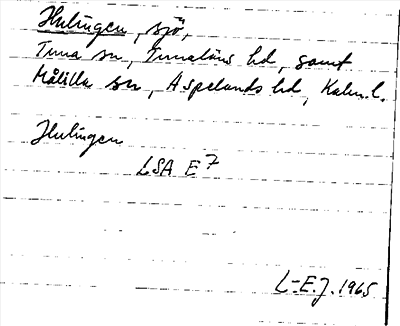 Hulingen, sjö,
Tuna sn, Tunaläns hd, samt
Målilla sn, Aspelands hd, Kalm. l.
Hulingen
LSA E 7
L-E.J. 1965